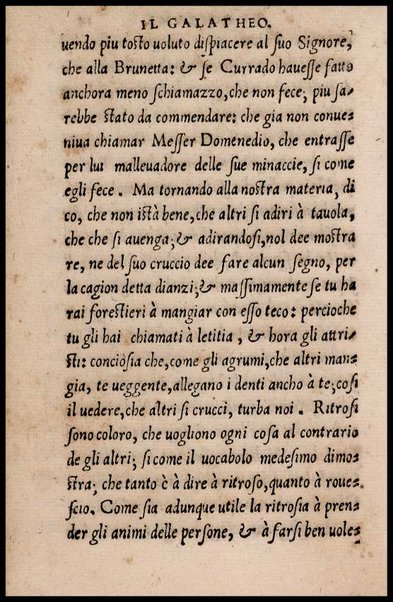 IL GALATHEO.
uendo piu tosto uoluto dispiacere al suo Signore,
che alla Brunetta: & se Currado hauesse fatto
anchora meno schiamazzo, che non fece; piu sa-
rebbe stato da commendare: che gia non conue-
niua chiamar Messer Domenedio, che entrasse
per lui malleuadore delle sue minaccie, si come
egli fece. Ma tornando alla nostra materia, di
co, che non istà bene, che altri si adiri à tauola,
che che si auenga; & adirandosi, nol dee mostra
re, ne del suo cruccio dee fare alcun segno, per
la cagion detta dianzi; & massimamente se tu ha
rai forestieri à mangiar con esso teco: percioche
tu gli hai chiamati à letitia, & hora gli attri-
sti: conciosia che, come gli agrumi, che altri man-
gia, te ueggente, allegano i denti ancho à te; cosi
il uedere, che altri si crucci, turba noi. Ritrosi
sono coloro, che uogliono ogni cosa al contrario
de gli altri; si come il uocabolo medesimo dimo-
stra; che tanto è à dire à ritroso, quanto à roue-
scio. Come sia adunque utile la ritrosia à pren-
der gli animi delle persone, & à farsi ben uole-